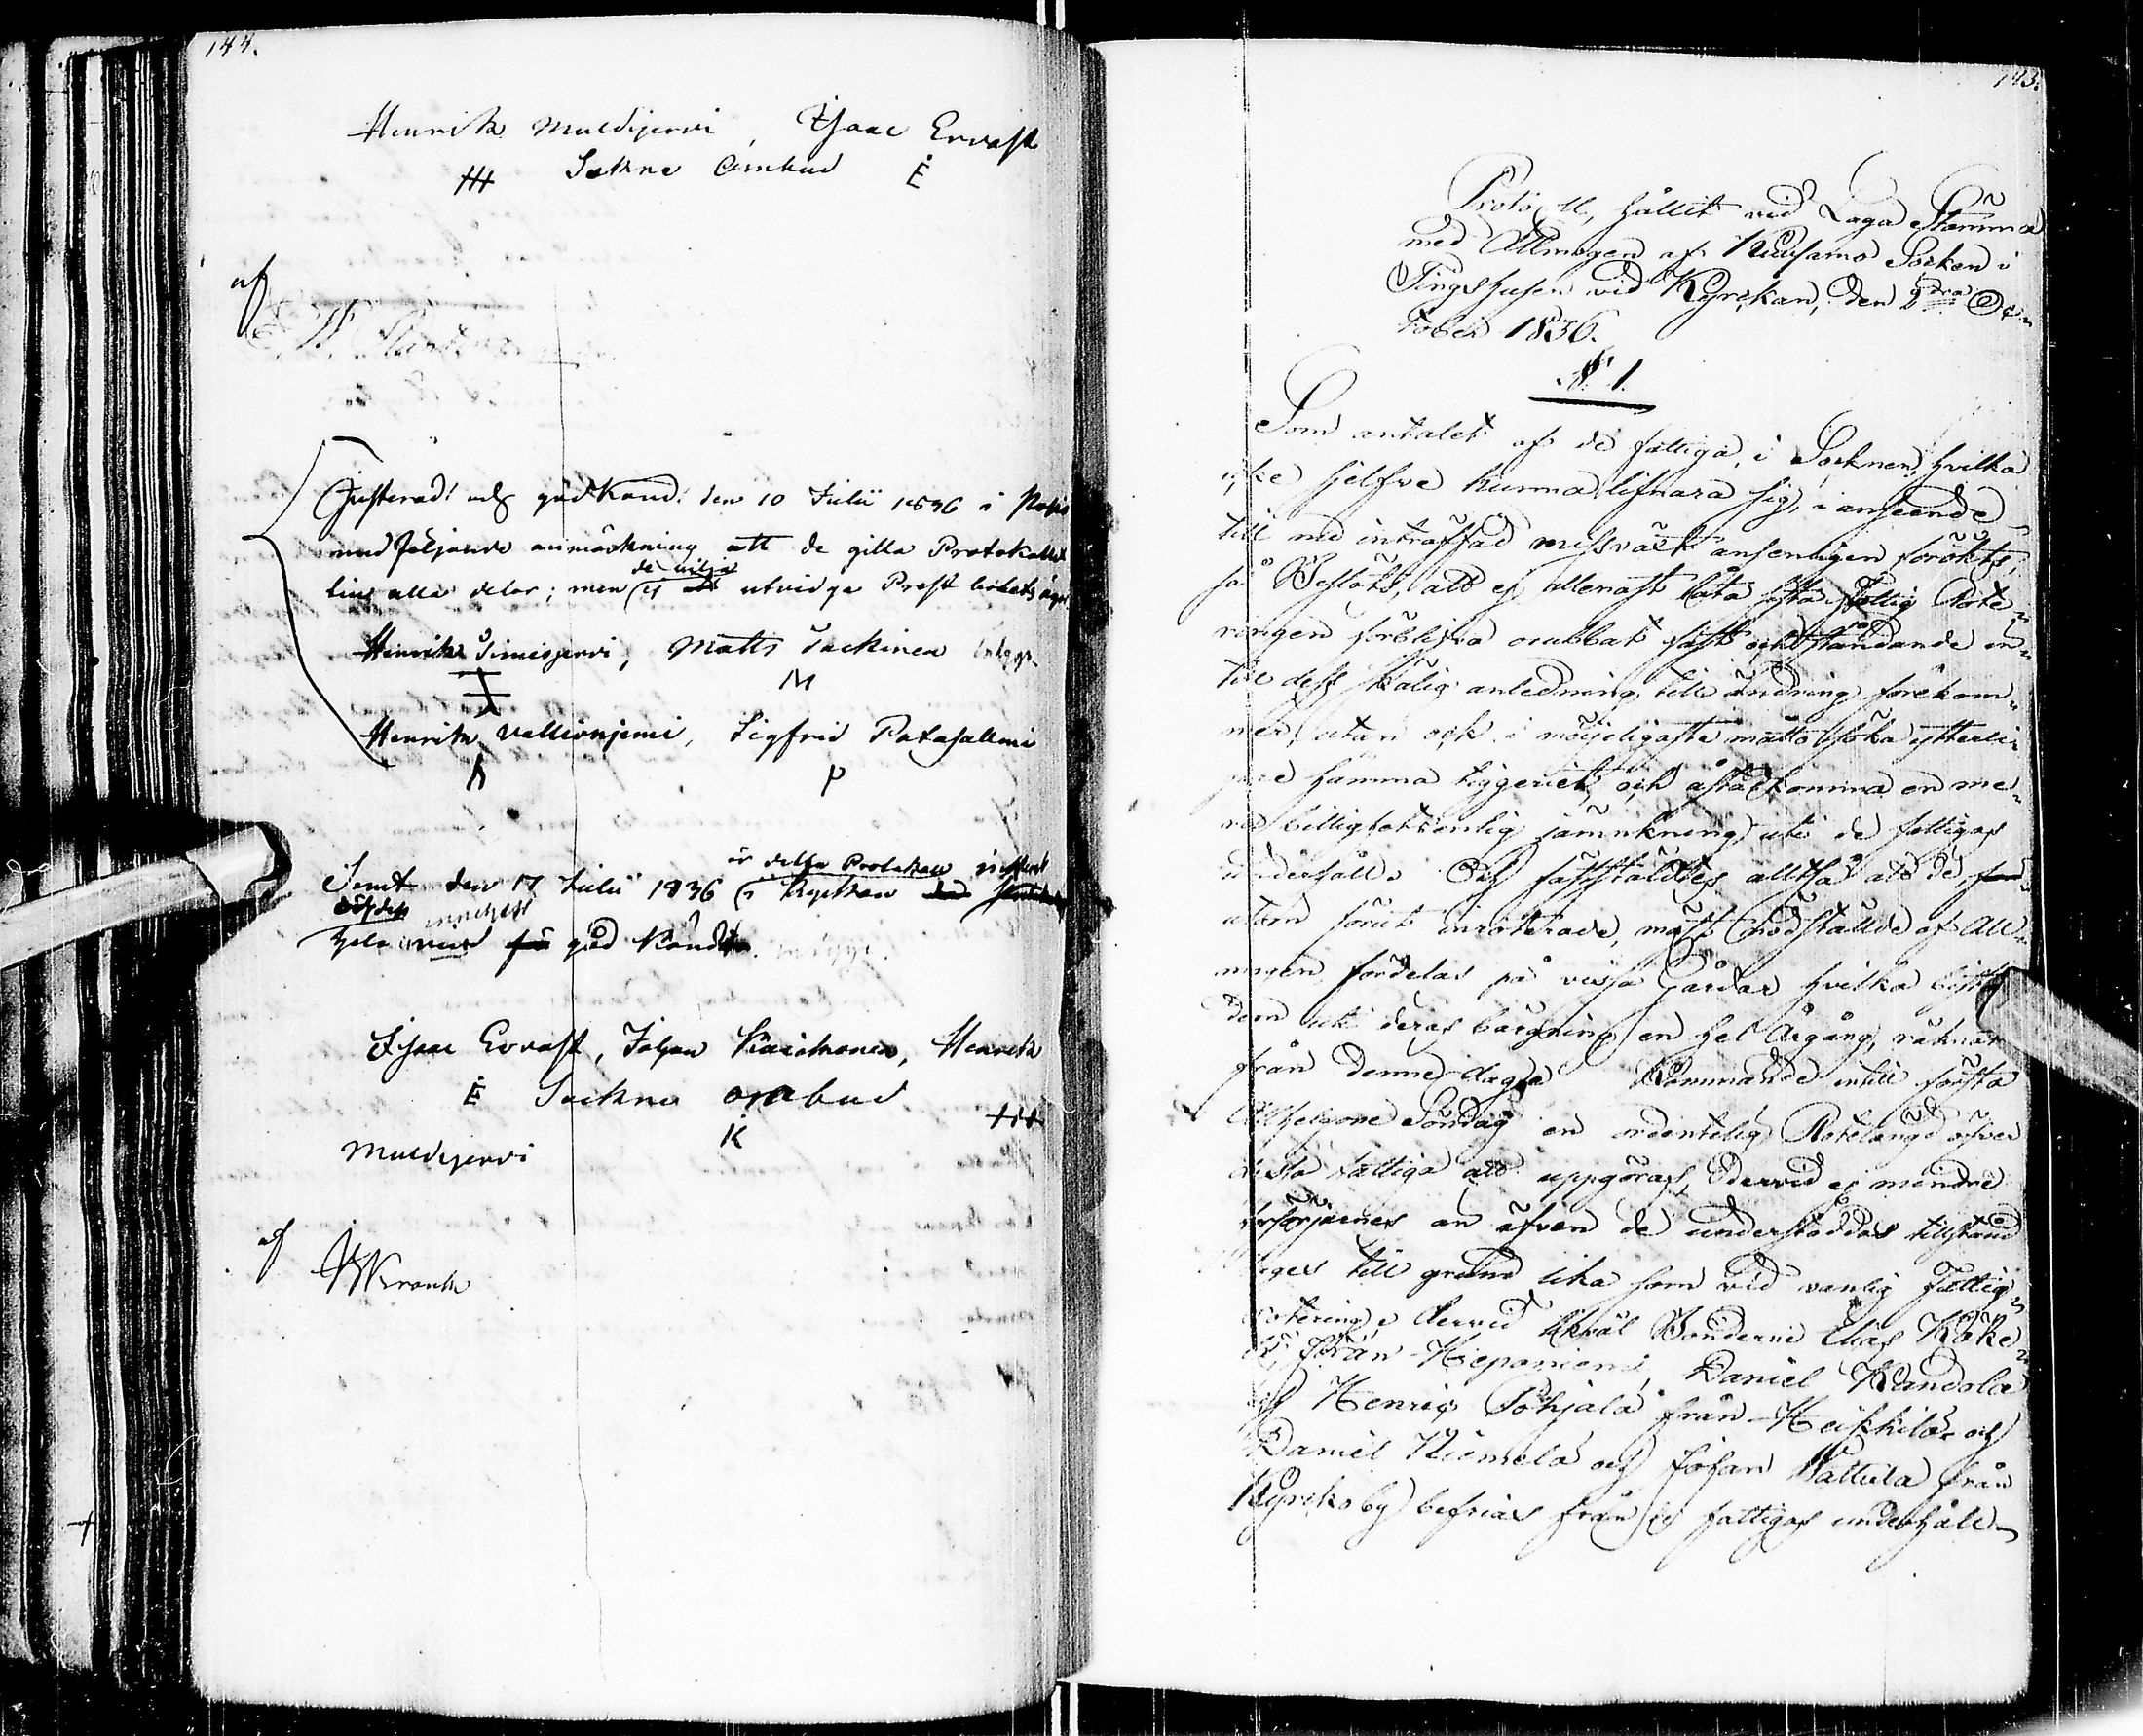 144.
Henrik Muldijervi, Isaac Ervast
Sokne Ombud
af
Justerad och god känd den 10 Julii 1836 i Posio
med följande anmärkning att de gilla Protokollet
till alla delar; men de vilja ej utvidga Prest
Henrik Simisjervi, Matts Jackinen
M
Henrik Vallionjemi, Sigfrid Patasallmi
P
Samt den 17 Julii 1836 är detta Protokoll justerat
i Kyrkan
god känd
Isaac Ervast, Johan Kaickonen, Henrik
Sockne ombud
K
Muldijervi
af
Krank
143.
Protocoll, hållit vid Laga Stämma
med Allmogen af Kuusamo Socken i
Tingshusen vid Kyrckan, den 9dra Oc-
tober 1836.
§ 1.
Som antalet af de fattiga, i Socknen, hvilka
icke sjelfve kunna lifnära sig, i anseende
till nu inträffad missväxt ansenligen förökts,
så Beslöts, att ej allenast låta sista Fattig Rote-
ringen förblifva orubbat fast och bestående in-
till dess skälig anledning till ändring förekom-
mer, utan ock i möijeligaste måtto söka ytterli-
gare hämma tiggeriet, och åstadkomma en me-
ra billighetsenlig jämnkning uti de fattigas
underhåll. Och fastställdtes alltså att de,
utom förut inroterade, mäst nödställde af All-
mogen, fördelas på vissa Gårdar hvilka bistå
dem uti deras bärgning en hel Årgång, räknat
från denna dag. Kommande intill första
Allhelgone Söndag en ordentelig Rotelängd öfver
desse fattiga att uppgöras, dervid ej mindre
försörjarnes än äfven de understöddas tillstånd
läges till grund lika som vid vanlig Fattig-
rotering, dervid likväl Bönderne Elias Käke-
lä från Hiepaniemi, Daniel Kandola
och Henric Pohjala från Heikkilä och
Daniel Niemelä och Johan Nattula från
Kyrckoby befrias från de fattigas underhåll